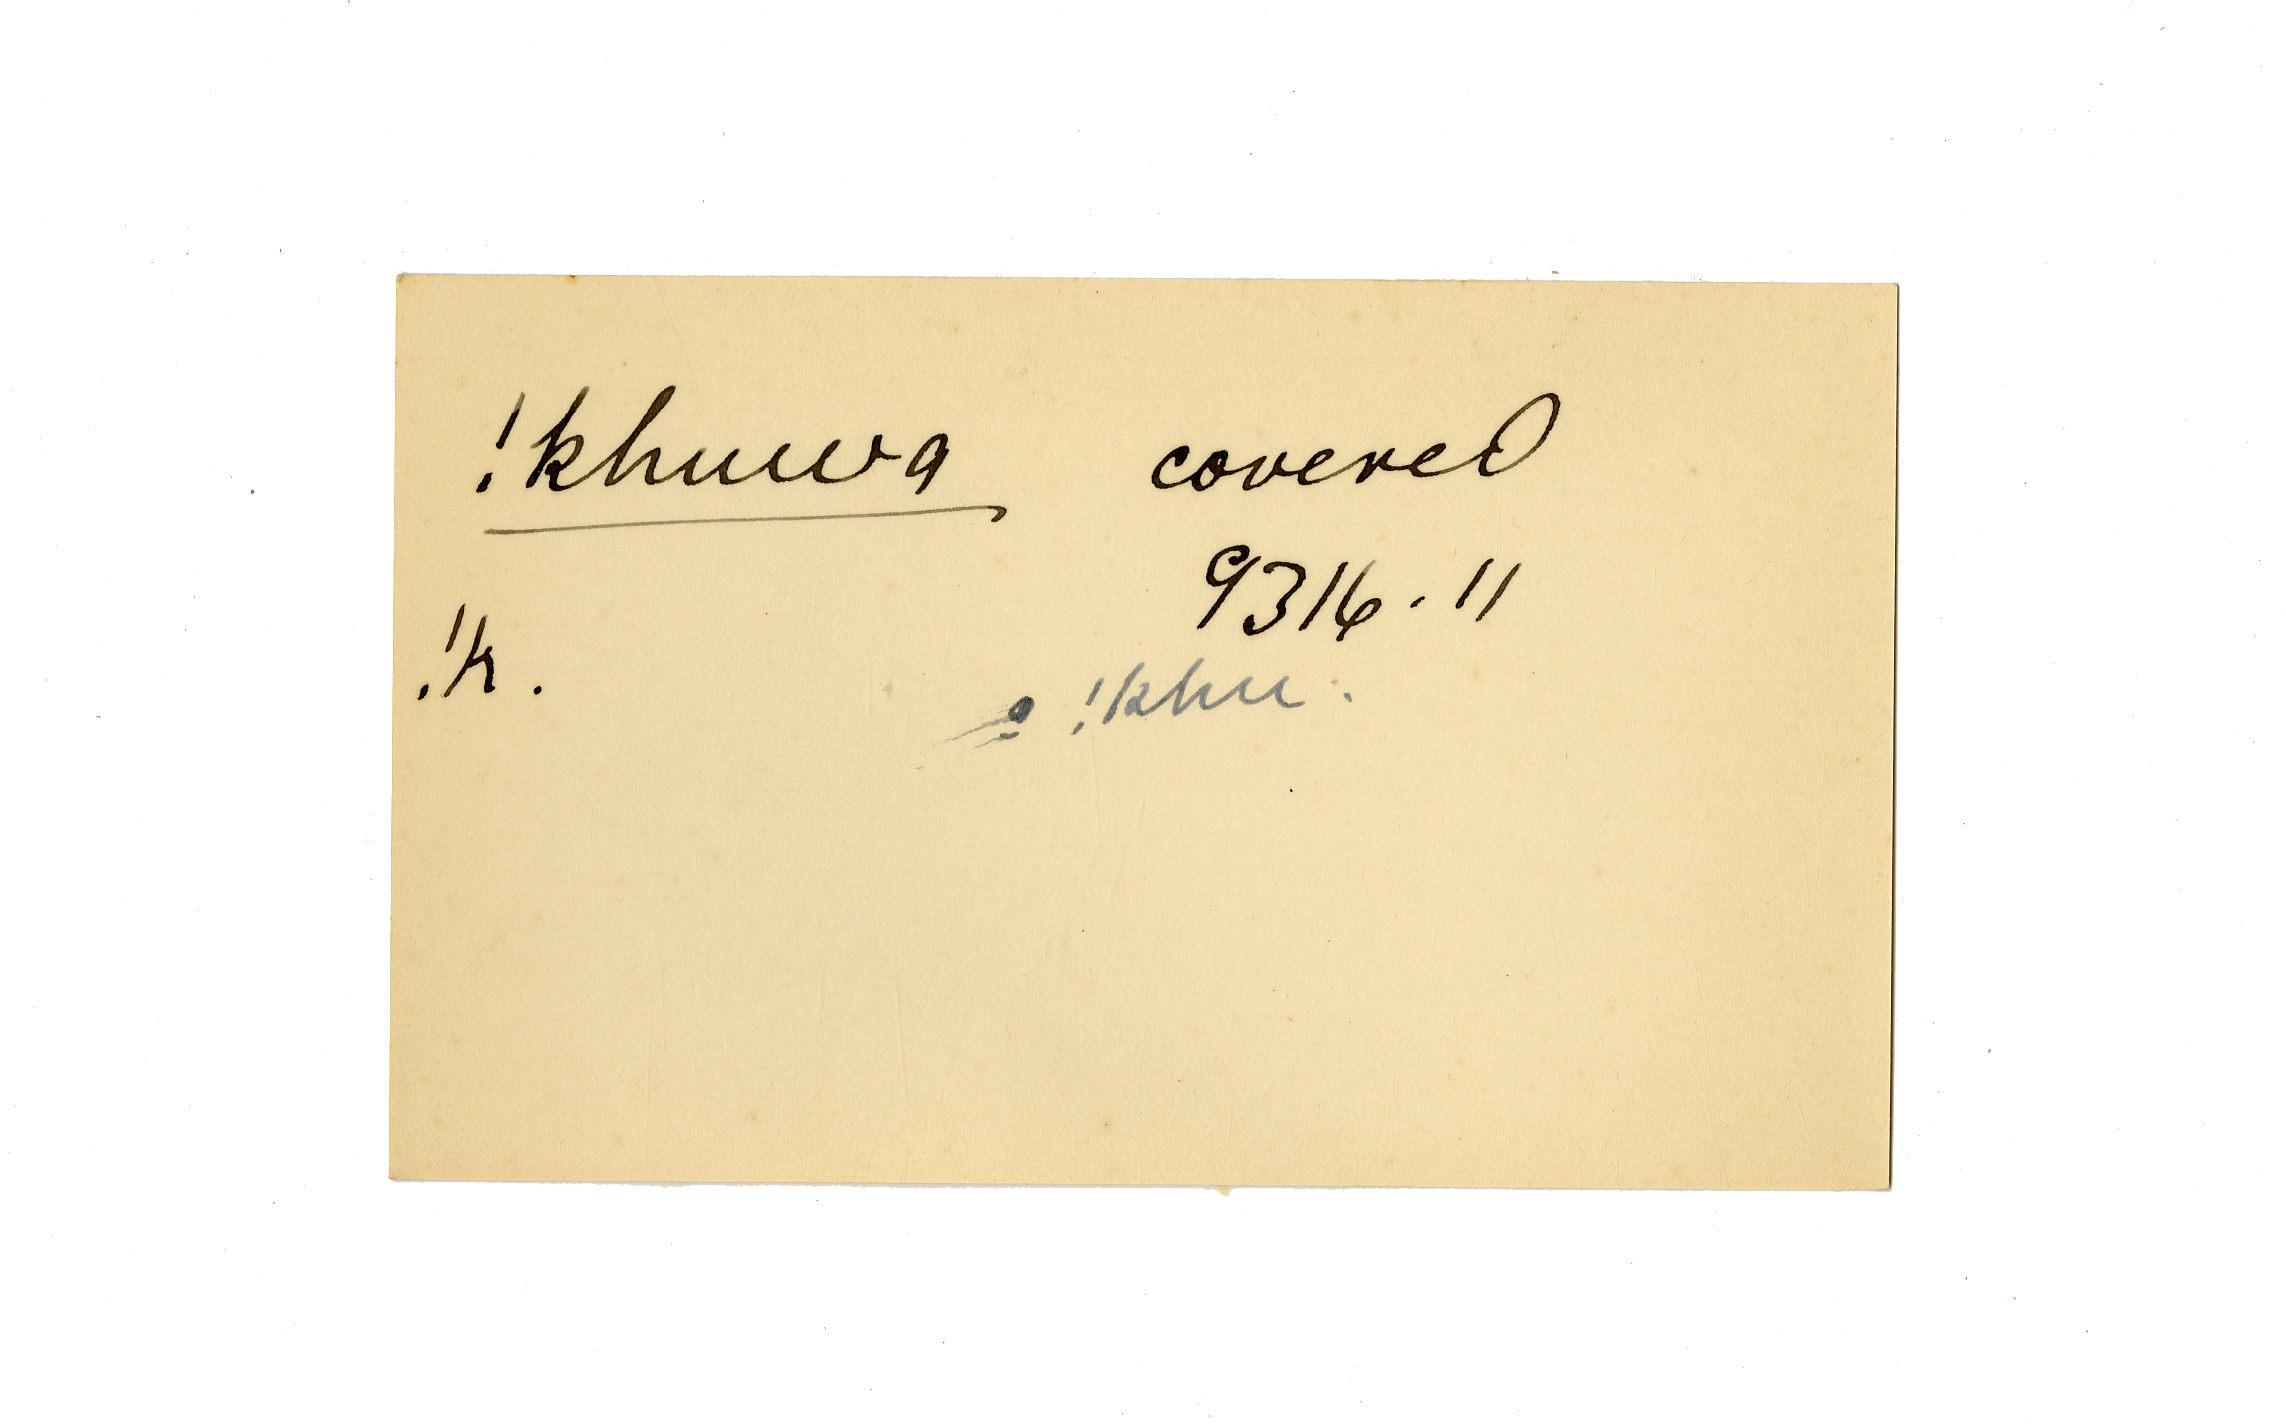 !khuwa covered
9316. 11
!k.
!khu.